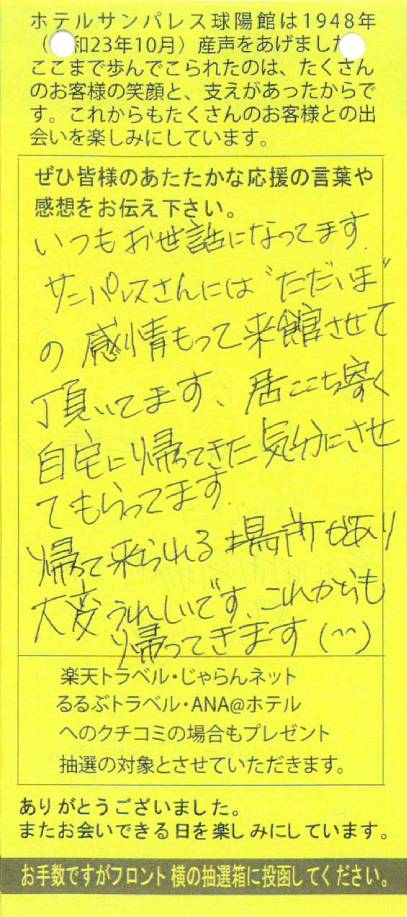 ホテルサンパレス球陽館は1948年
（ 和23年10月）産声をあげました
ここまで歩んでこられたのは、たくさん
のお客様の笑顔と、支えがあったからで
す。これからもたくさんのお客様との出
会いを楽しみにしています。
ぜひ皆様のあたたかな応援の言葉や
感想をお伝え下さい。
いつもお世話になってます.
サンパレスさんには“ただいま”
の感情もって来館させて
頂いてます、居ごこち寄く
自宅に帰ってきた気分にさせ
てもらってます.
帰って来られる場所があり
大変うれしいです、これからも
帰ってきます(^^)
楽天トラベル・じゃらんネット
るるぶトラベル・ANA@ホテル
へのクチコミの場合もプレゼント
抽選の対象とさせていただきます。
ありがとうございました。
またお会いできる日を楽しみにしています。
お手数ですがフロント横の抽選箱に投函してください。